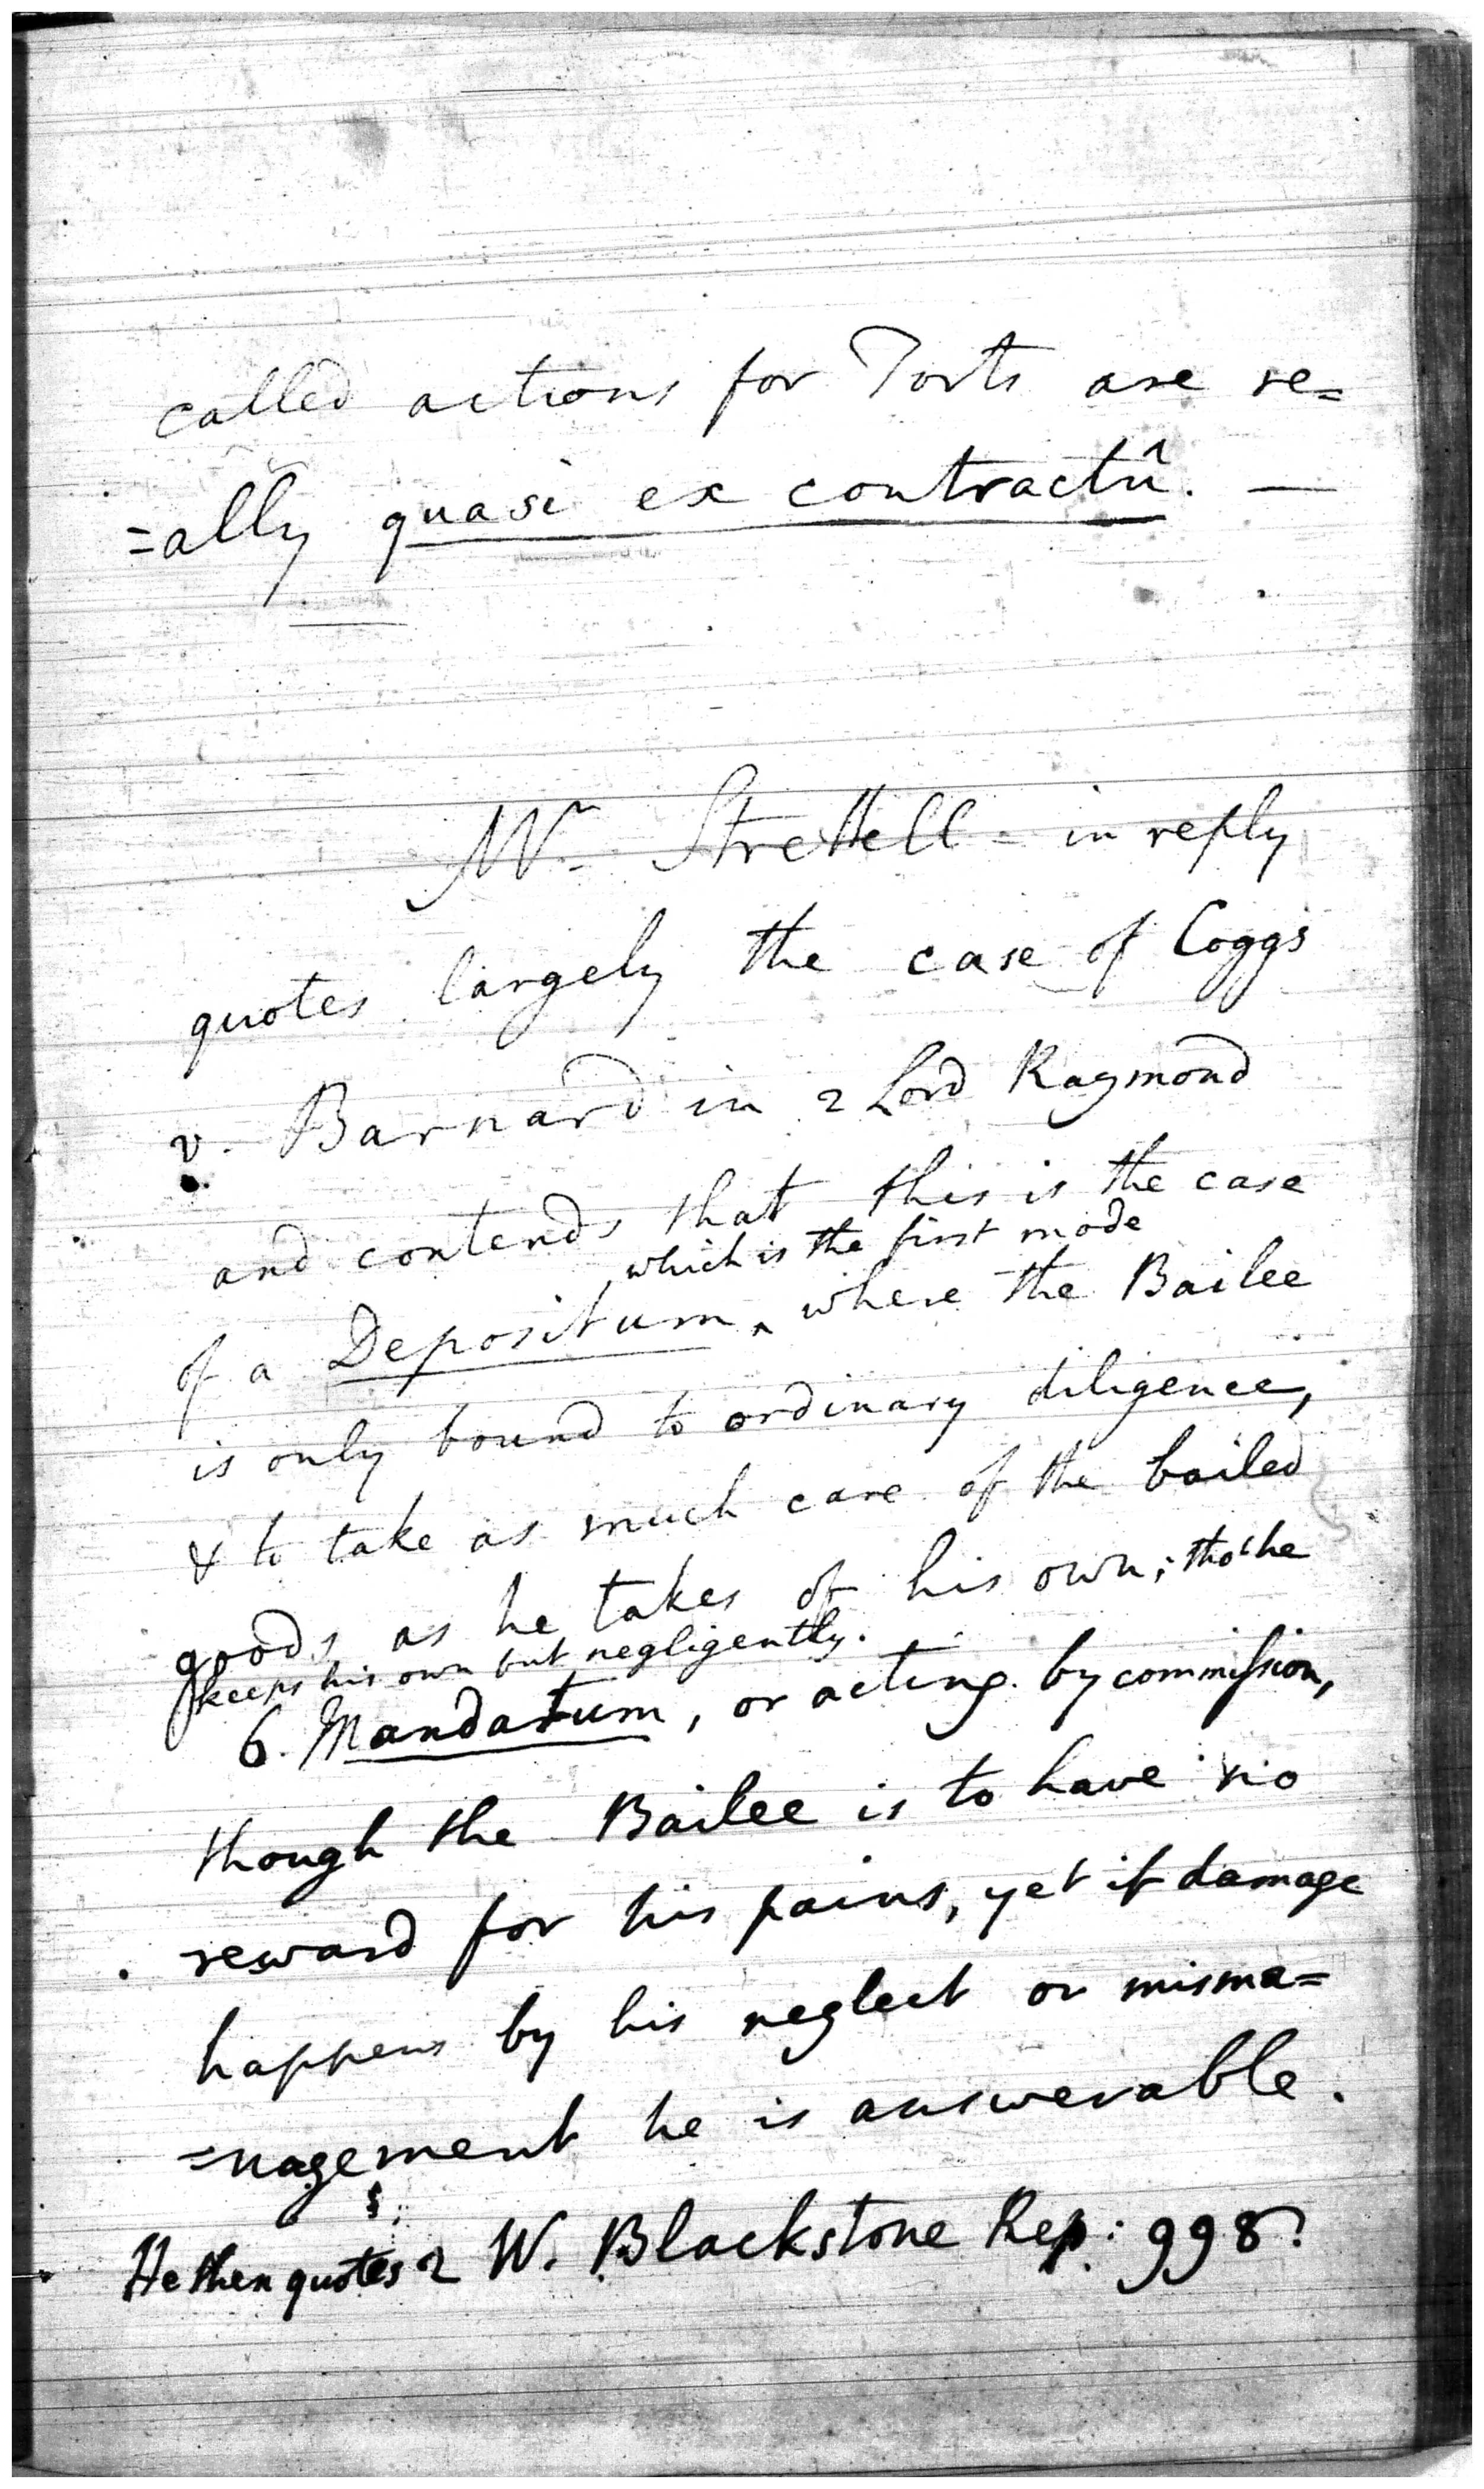 called actions for Torts are re=
=ally quasi ex contractû. —
Mr. Strettell - in reply
quotes largely the case of Coggs
v. Barnard in 2 Lord Raymond
and contends that this is the case
, which is the first mode
of a Depositum ‸ where the Bailee
is only bound to ordinary diligence,
& to take as much care of the bailed
goods as he takes of his own; tho' he
keeps his own but negligently.
6. Mandatum, or acting by commission,
though the Bailee is to have no
reward for his pains, yet if damage
happens by his neglect or misma=
=nagement he is answerable.
He then quotes 2 W. Blackstone Rep: 998.